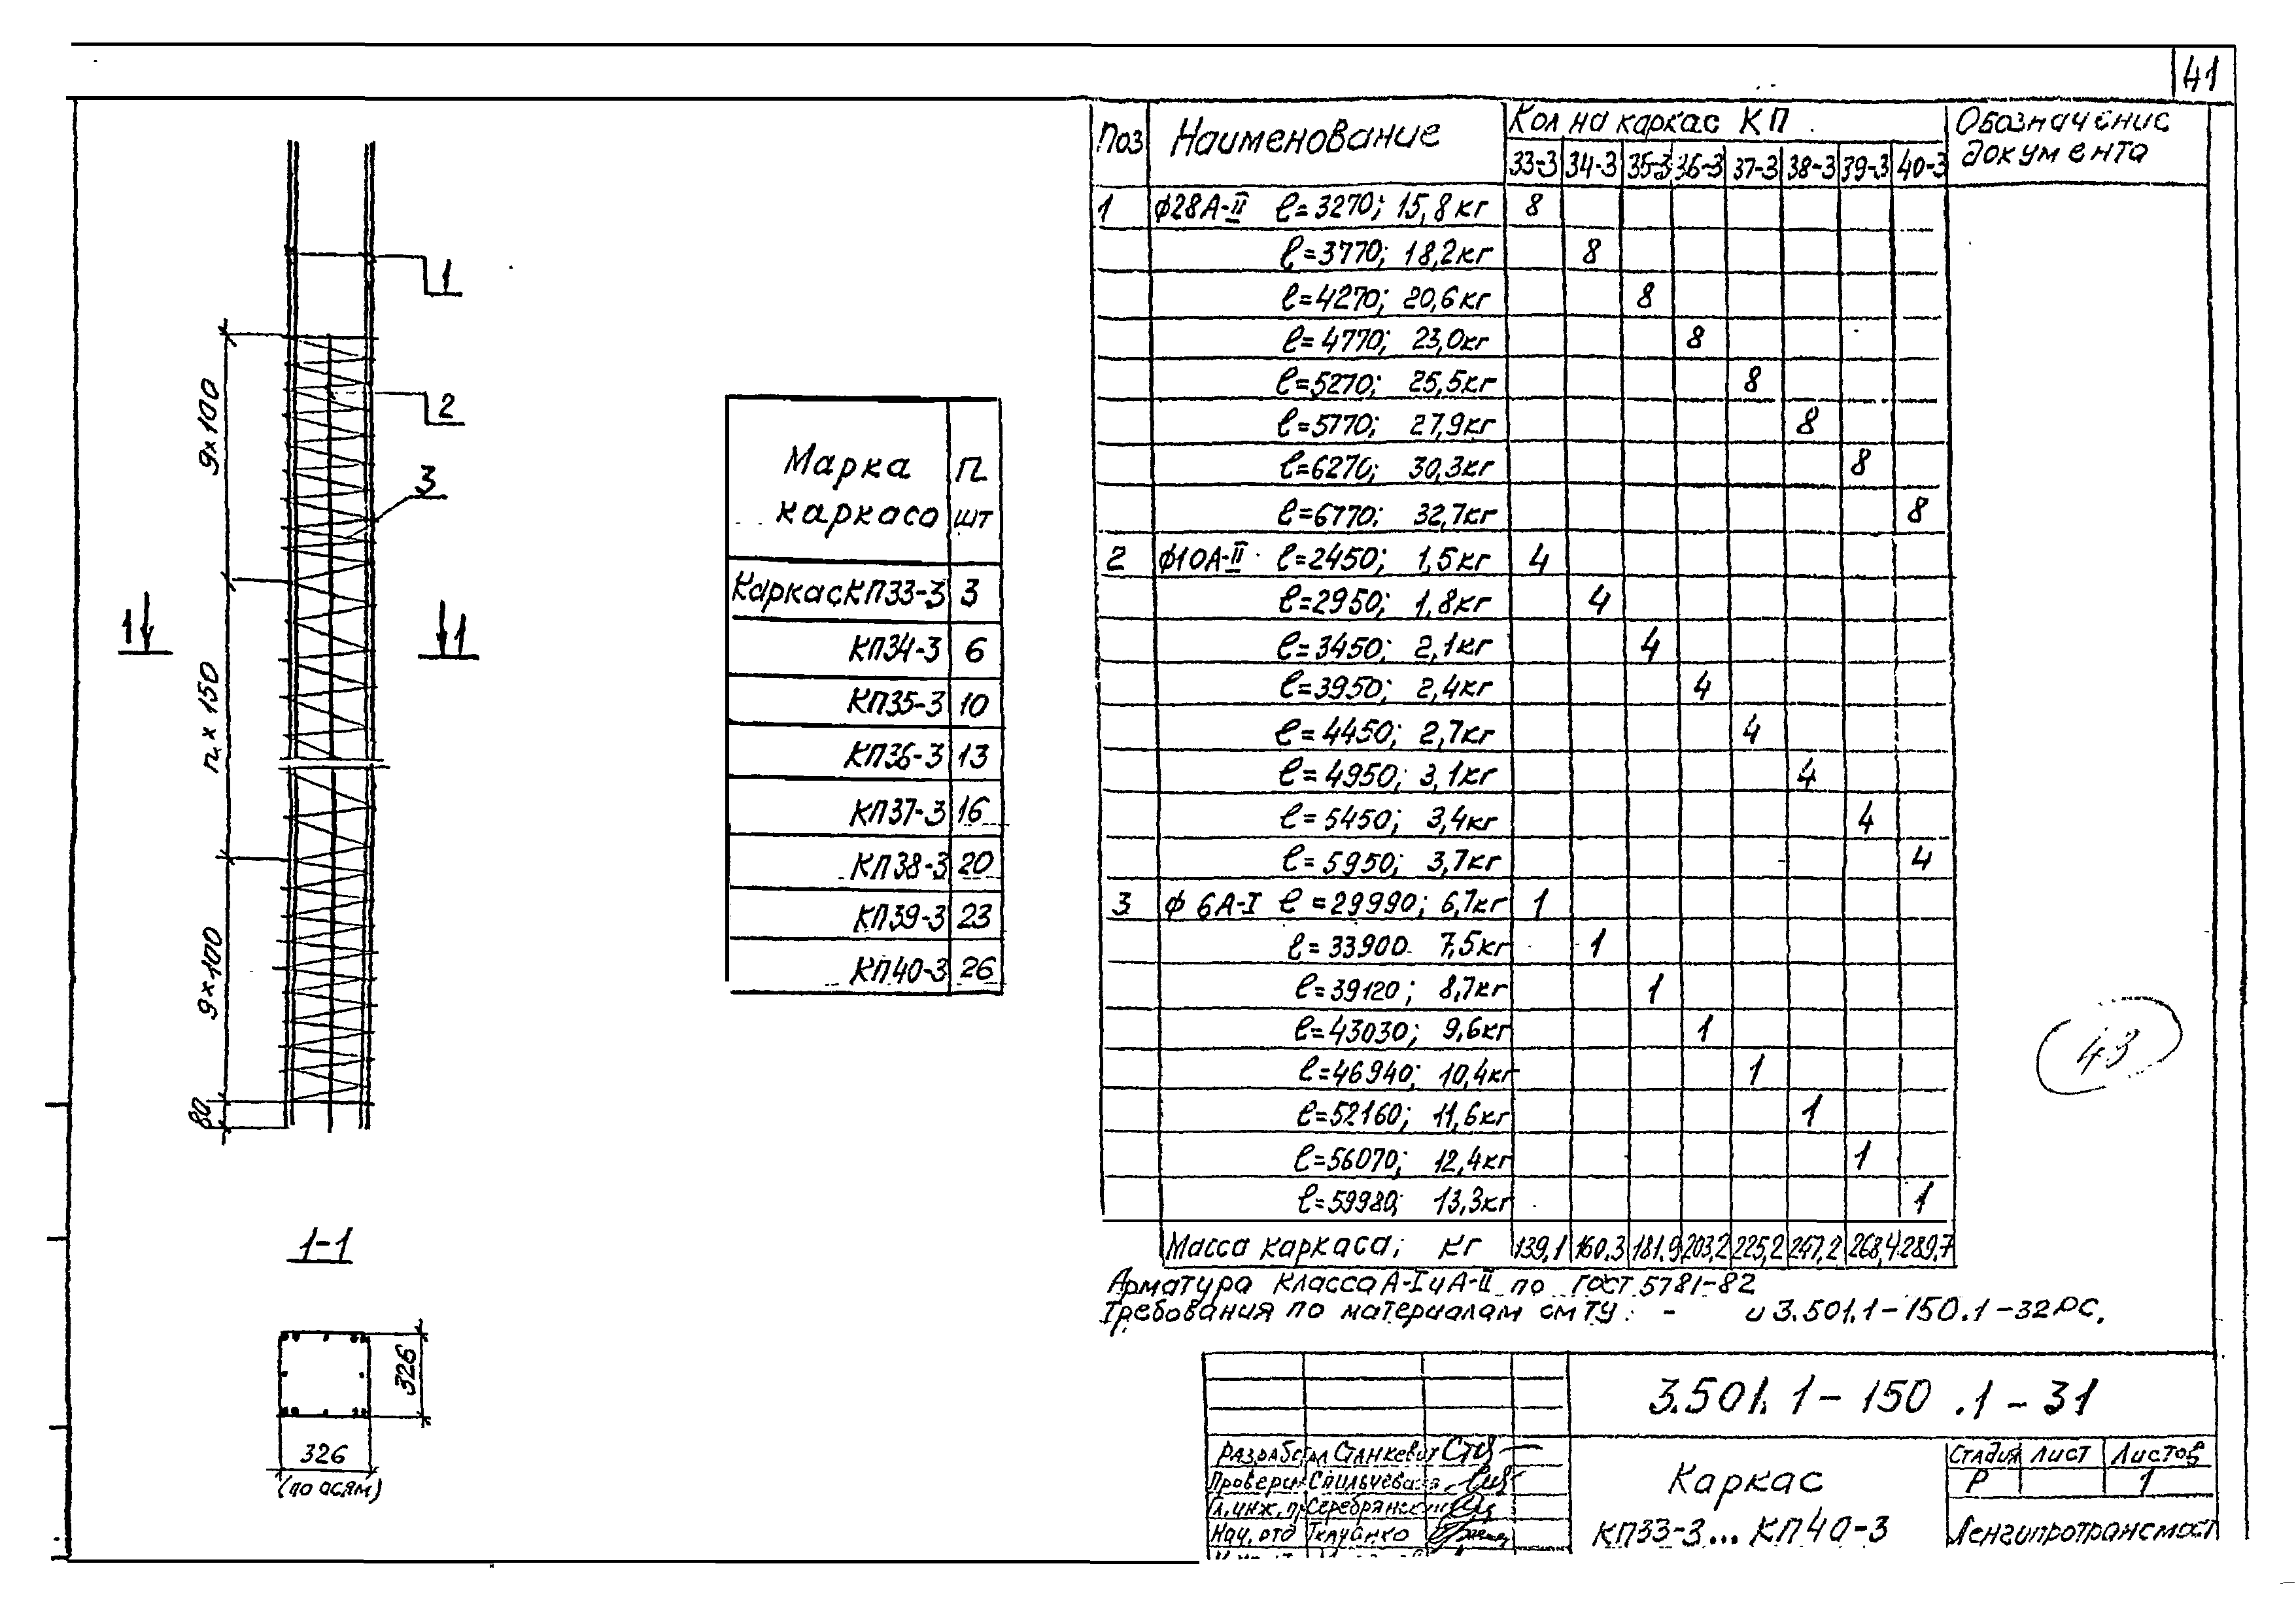 41
1
2
3
9×100
n × 150
9×100
80
1
1
1-1
326
326
(по осям)
Марка каркаса п шт
Каркас КП33-3 3
КП34-3 6
КП35-3 10
КП36-3 13
КП37-3 16
КП38-3 20
КП39-3 23
КП40-3 26
Поз Наименование Кол на каркас КП Обозначение документа
33-3 34-3 35-3 36-3 37-3 38-3 39-3 40-3
1 ф28А-II ℓ=3270; 15,8кг 8
ℓ=3770; 18,2кг 8
ℓ=4270; 20,6кг 8
ℓ=4770; 23,0кг 8
ℓ=5270; 25,5кг 8
ℓ=5770; 27,9кг 8
ℓ=6270; 30,3кг 8
ℓ=6770; 32,7кг 8
2 ф10А-II ℓ=2450; 1,5кг 4
ℓ=2950; 1,8кг 4
ℓ=3450; 2,1кг 4
ℓ=3950; 2,4кг 4
ℓ=4450; 2,7кг 4
ℓ=4950; 3,1кг 4
ℓ=5450; 3,4кг 4
ℓ=5950; 3,7кг 4
3 ф 6А-I ℓ=29990; 6,7кг 1
ℓ=33900 7,5кг 1
ℓ=39120; 8,7кг 1
ℓ=43030; 9,6кг 1
ℓ=46940; 10,4кг 1
ℓ=52160; 11,6кг 1
ℓ=56070; 12,4кг 1
ℓ=59980; 13,3кг 1
Масса каркаса; кг 139,1 160,3 181,9 203,2 225,2 247,2 268,4 289,7
Арматура класса А-I и А-II по ГОСТ 5781-82
Требования по материалам см ТУ: - и 3.501.1-150.1-32РС.
43
3.501.1-150.1-31
Каркас
КП33-3...КП40-3
Стадия Лист Листов
Р 1
Ленгипротрансмост
Разработал Станкевич
Проверил
Гл.инж.пр Серебрянский
Нач.отд Ткаченко